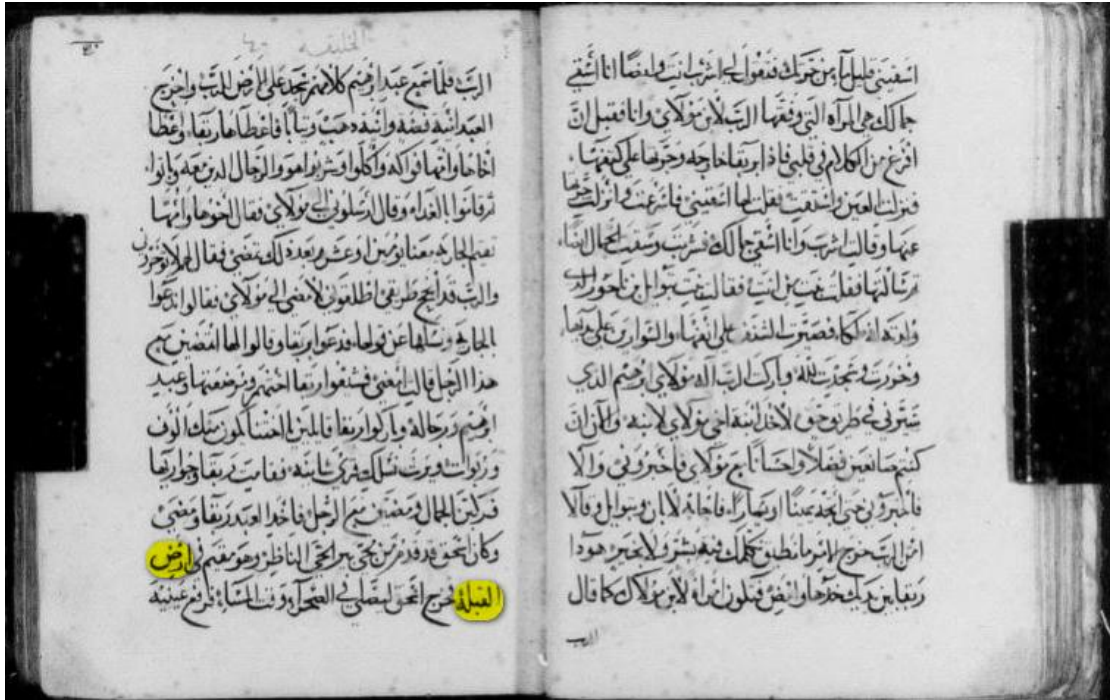 اسقيني قليل ماء من جرتك فتقول لي اشرب انت وايضًا انا اسقي
جمالك هي المراه التي وفقها الرب لابن مولاي وانا فقبل ان
افرغ من الكلام في قلبي فاذا بربقا خارجه وجرتها على كتفها
فنزلت العين واستقت فقلت لها اسقيني فاسرعت وانزلت جرتها
عنها وقالت اشرب وانا اسقي جمالك فشربت وسقت الجمال ايضًا
ثم سالتها فقلت بنت من انتي فقالت بنت بتوايل بن ناحور الدي
ولدته له ملكا فصيرت الشنف على انفها والسوارين على يديها
وخررت وسجدت لله وباركت الرب اله مولاي ابرهيم الدي
سيرني في طريق حق لاخذ ابنة اخي مولاي لابنه والان ان
كنتم صانعين فضلا واحسانا مع مولاي فاخبروني والا
فاخبروني حتى اخد يمينًا او يسارًا فاجابه لابان وبتوايل وقالا
من الرب خرج الامر ما نطيق نكلمك فيه بشر ولا بخير هودا
ربقا بين يديك خدها وامض فتكون امراه لابن مولاك كما قال
الرب
الخليقه
الرب فلما سمع عبد ابرهيم كلامهم سجد على الارض للرب واخرج
العبد انية فضه وانية دهب وثيابًا فاعطاها ربقا واعطا
اخاها وامها فواكه واكلوا وشربوا هو والرجال الدين معه وباتوا
ثم قاموا بالغداه وقال ارسلوني الى مولاي فقال اخوها وامها
تقيم الجاريه معنا يومين او عشر وبعد دلك تمضي فقال لهم لا توخروني
والرب قد انجح طريقي اطلقوني لامضي الى مولاي فقالوا ندعوا
بالجاريه ونسالها عن قولها فدعوا ربقا وقالوا لها اتمضين مع
هدا الرجل قالت امضي فشيعوا ربقا اختهم ومرضعتها وعبيد
ابرهيم ورجاله وباركوا ربقا قايلين يا اختنا كون منك الوف
وربوات ويرث نسلك قرى شانيه فقامت ربقا وجوارها
فركبن الجمال ومضين مع الرجل فاخد العبد ربقا ومضى
وكان اسحق قد قدم من مجي بير الحي الناظر وهو مقيم في ارض
القبلة فخرج اسحق ليصلي في الصحرا وقت المساء فرفع عينيه